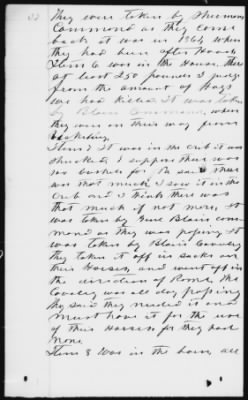 They were taken by Sherman
Command as they came
back at was in 1864 when
they had been after Hood
Item 6 was in the House. There
at least 250 pounds I judge
from the amount of Hogs
we had Killed. It was taken
by Blairs Command, when
they was on their way from
Item 7 It was in the crib it was
shucked, I suppose there was
no bushes for. Pa said there
was that much I saw it in the
crib and I think there was
that much if not more, it
was taken by Genl Blairs com-
mand as they was passing. It
was taken by Blairs Cavalry
they took it off in sacks on
their Horses, and went off in
the direction of Rome, the
Cavalry was all day passing
they said they needed it and
must have it for the use
of their Horses for they had
none
Item 8 Was in the barn, all